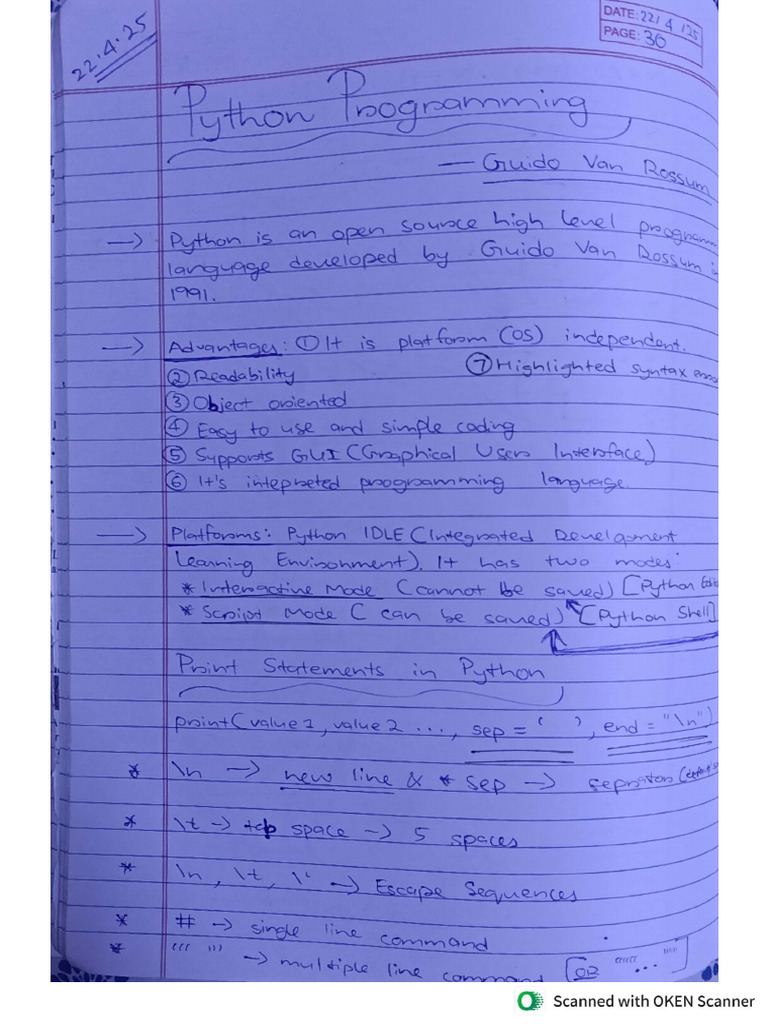 22.4.25
DATE: 22/4/25
PAGE: 30
Python Programming
— Guido Van Rossum
→ Python is an open source high level programm
language developed by Guido Van Rossum i
1991.
→ Advantages: ① It is platform (OS) independent.
② Readability ⑦ Highlighted syntax erro
③ Object oriented
④ Easy to use and simple coding
⑤ Supports GUI (Graphical User Interface)
⑥ It's intepreted programming language.
→ Platforms: Python IDLE (Integrated Development
Learning Environment). It has two modes:
* Interactive Mode (cannot be saved) [Python Edit
* Script Mode ( can be saved) [Python Shell]
Print Statements in Python
print(value1, value2 ..., sep = ' ', end = "\n")
* \n → new line & * sep → seprator
* \t → tab space → 5 spaces
* \n, \t, \' → Escape Sequences
* # → single line command
* ''' ''' → multiple line command OR """ ... """
Scanned with OKEN Scanner